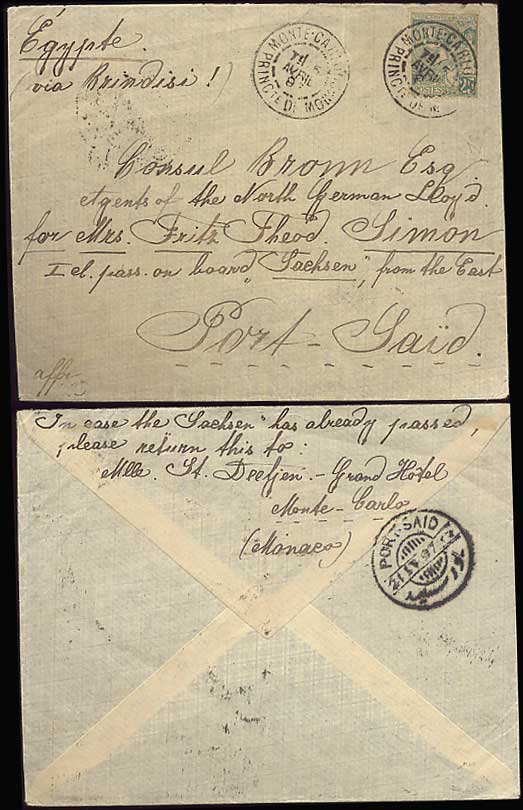 Égypte.
(via Brindisi!)
MONTE-CARLO
PRINCTE DE MONACO
AVRIL
MONTE-CARLO
PRINCTE DE M
AVRIL
25
POSTES
Consul Bronn Esq.
Agents of the North German Lloyd.
for Mrs. Fritz Theod. Simon
I cl. pass. on board "Sachsen", from the East
Port-Saïd.
affr
"In case the Sachsen" has already passed,
please return this to:
Mlle. St. Deetjen.-Grand Hôtel
Monte-Carlo
(Monaco)
PORT-SAID